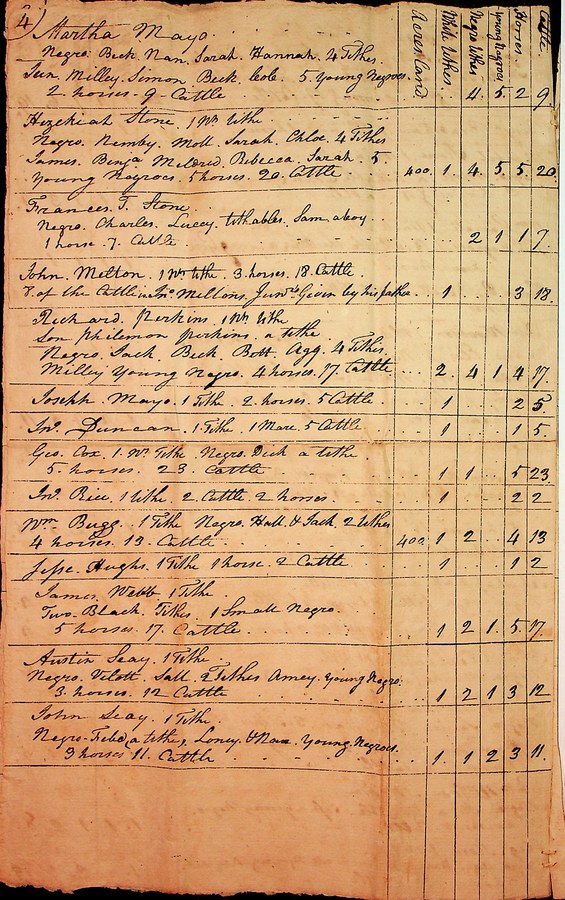 4) Acres Land. White tithes. Negro tithes young Negroes Horses Cattle.
Martha Mayo.
Negro. Beck. Nan. Sarah. Hannah. 4 Tithes.
Jun. Milley. Simon Beck. 5. young Negroes.
2. horses. 9 Cattle 4. 5 2 9.
Hezekiah Stone. 1 Wh. tithe.
Negroe. Nimby. Moll. Sarah. Chloe. 4 Tithes
James. Benja Mildred. Rebecca. Sarah. 5
young Negroes. 5 horses. 20. Cattle 400. 1. 4 5. 5. 20.
Frances. T. Stone.
Negro. Charles. Lucey. tithables. Sam. a boy
1 horse. 7. Cattle. 2 1 1 7.
John. Melton. 1 Wh. tithe. 3. horses. 18. Cattle.
8. of the Cattle is Jno. Meltons. Junrs. Given by his father 1 3 18.
Richard. Perkins. 1 Wh. tithe
Son Philemon perkins. a tithe
Negro. Jack. Beck. Bott. Agg. 4 Tithes.
Milley young Negro. 4 horses. 17. Cattle 2. 4 1 4 17.
Joseph. Mayo. 1 Tithe. 2. horses. 5 Cattle 1 2 5.
Jno. Duncan. 1. Tithe. 1 Mare. 5 Cattle 1 1 5.
Geo. Cox. 1. Wh. Tithe Negro. Dick a tithe
5 horses. 23. Cattle 1 1 5 23
Jno. Rice. 1 tithe. 2. Cattle. 2 horses 1 2 2
Wm Bugg. 1 Tithe Negro. Hall & Jack. 2 tithes
4 horses. 13. Cattle 400. 1 2 4 13
Jesse. Hughs. 1 Tithe 1 horse. 2 Cattle 1 1 2
James. Webb 1 Tithe.
Two. Black. Tithes. 1 Small Negro.
5 horses. 17. Cattle 1 2 1. 5 17
Austin Seay. 1 Tithe
Negro. Sall. 2 Tithes Amey. young Negro.
3. horses. 12 Cattle 1 2 1 3 12
John Seay. 1 Tithe.
Negro a tithe, & Nan. young Negroes
3 horses 11. Cattle 1. 1 2 3 11.